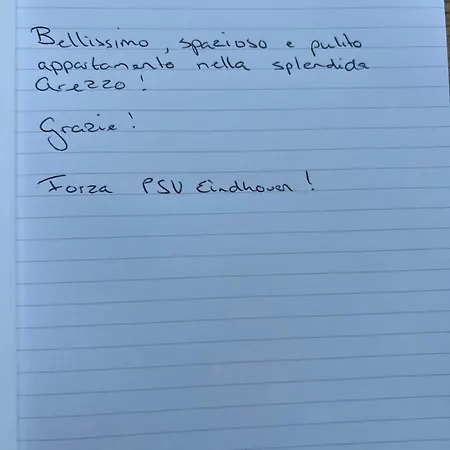 Bellissimo, spazioso e pulito
appartamento nella splendida
Arezzo!
Grazie!
Forza PSV Eindhoven!